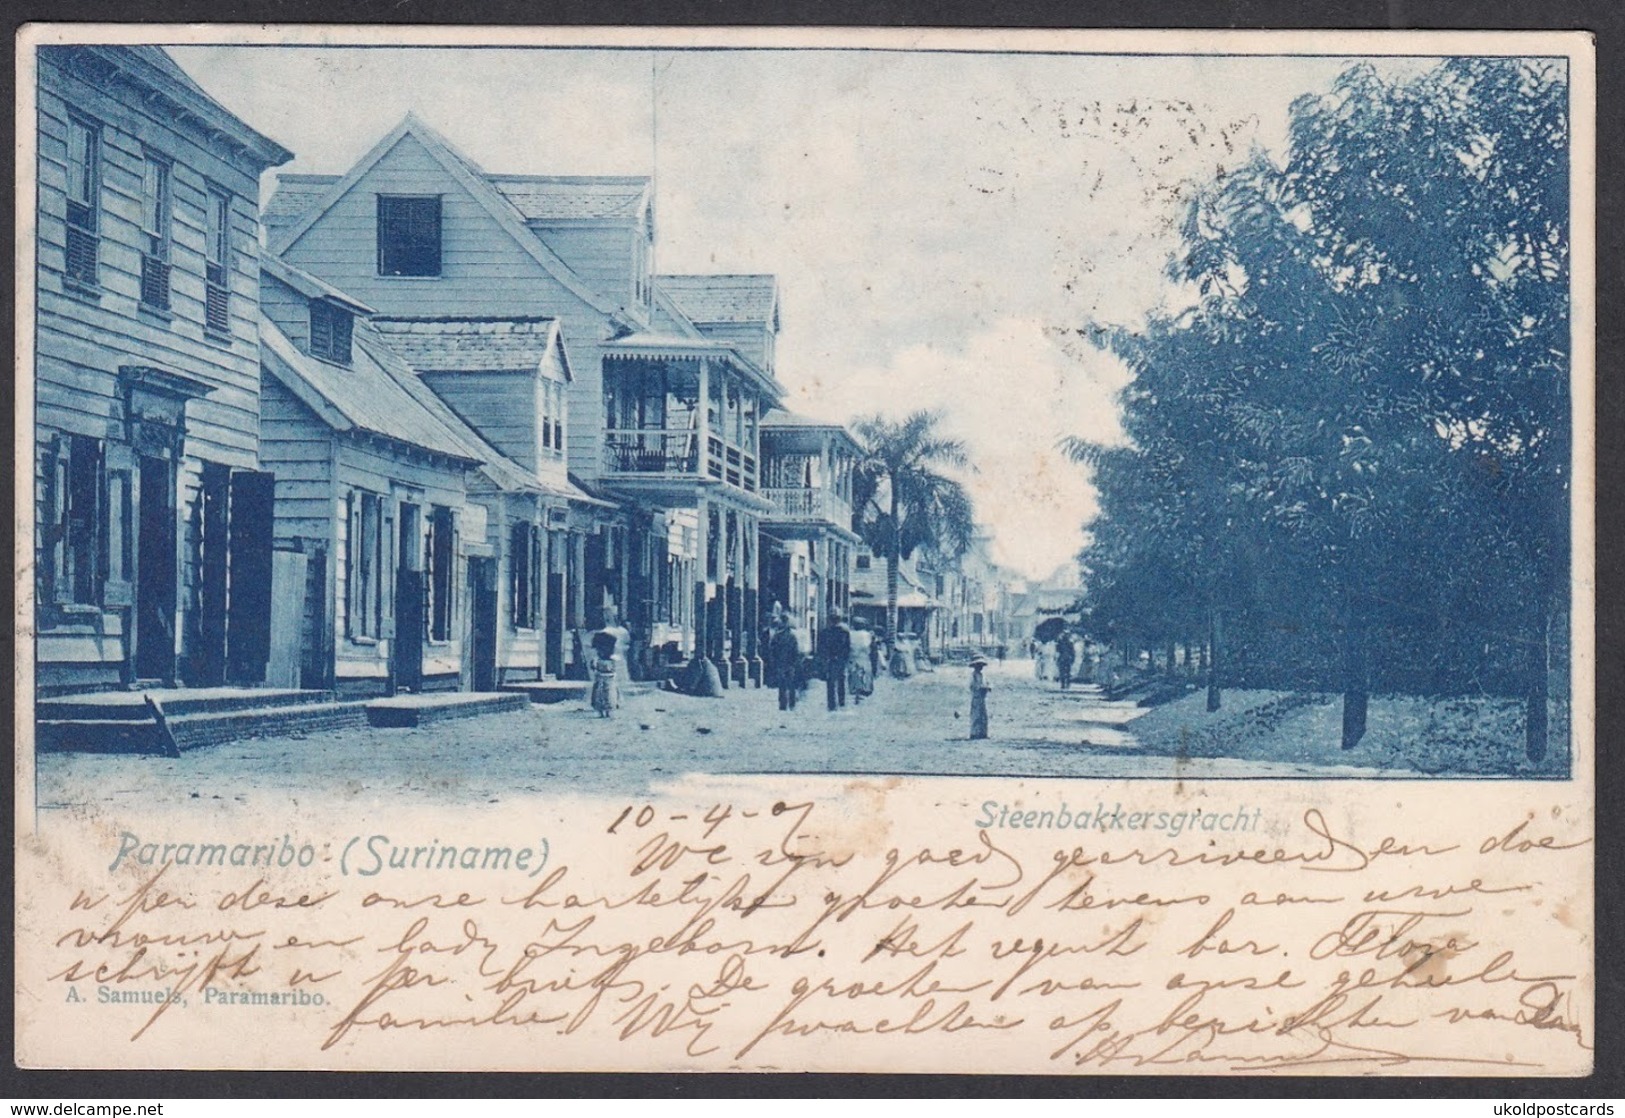 Steenbakkersgracht
Paramaribo - (Suriname)
10-4-07
We zijn goed gearriveerd en doe
u per deze onze hartelijke groeten tevens aan uwe
vrouw en lady Ingeborn. Het regent bar. Flora
schrijft u per brief. De groeten van onze geheele
familie. Wij wachten op berichten van
A. Samuels, Paramaribo.
delcampe.net
ukoldpostcards